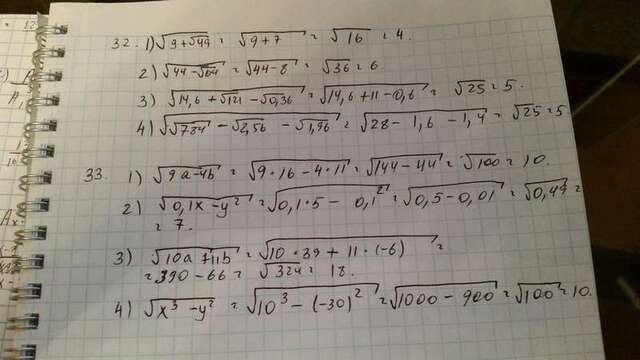 32. 1) √(9+√49) = √(9+7) = √16 = 4.
2) √(44-√64) = √(44-8) = √36 = 6
3) √(14,6+√121-√0,36) = √(14,6+11-0,6) = √25 = 5.
4) √(√784-√2,56-√1,96) = √(28-1,6-1,4) = √25 = 5
33. 1) √(9a-4b) = √(9·16-4·11) = √(144-44) = √100 = 10.
2) √(0,1x-y²) = √(0,1·5-0,1²) = √(0,5-0,01) = √0,49 =
= 7.
3) √(10a+11b) = √(10·39+11·(-6)) =
= 390-66 = √324 = 18.
4) √(x³-y²) = √(10³-(-30)²) = √(1000-900) = √100 = 10.